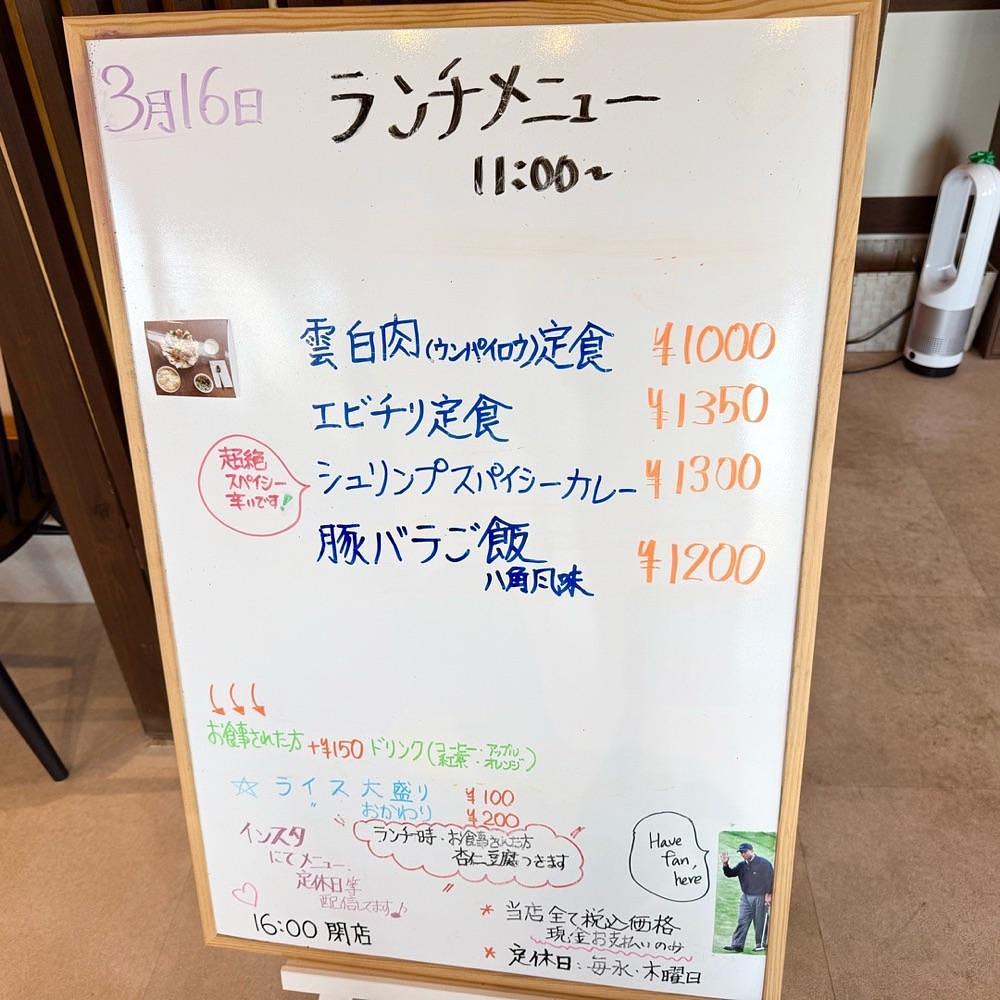 3月16日
ランチメニュー
11:00~
雲白肉(ウンパイロウ)定食 ¥1000
エビチリ定食 ¥1350
超絶
スペイシー
辛いです!
シュリンプスパイシーカレー ¥1300
豚バラご飯 ¥1200
八角風味
お食事された方 +¥150 ドリンク(コーヒー・アップル
紅茶・オレンジ)
☆ライス大盛り ¥100
〃 おかわり ¥200
ランチ時・お食事された方
杏仁豆腐つきます
インスタ
にてメニュー、
定休日等
配信してます♪
16:00 閉店
Have
fan,
here
* 当店全て税込価格
現金お支払いのみ
* 定休日:毎水・木曜日